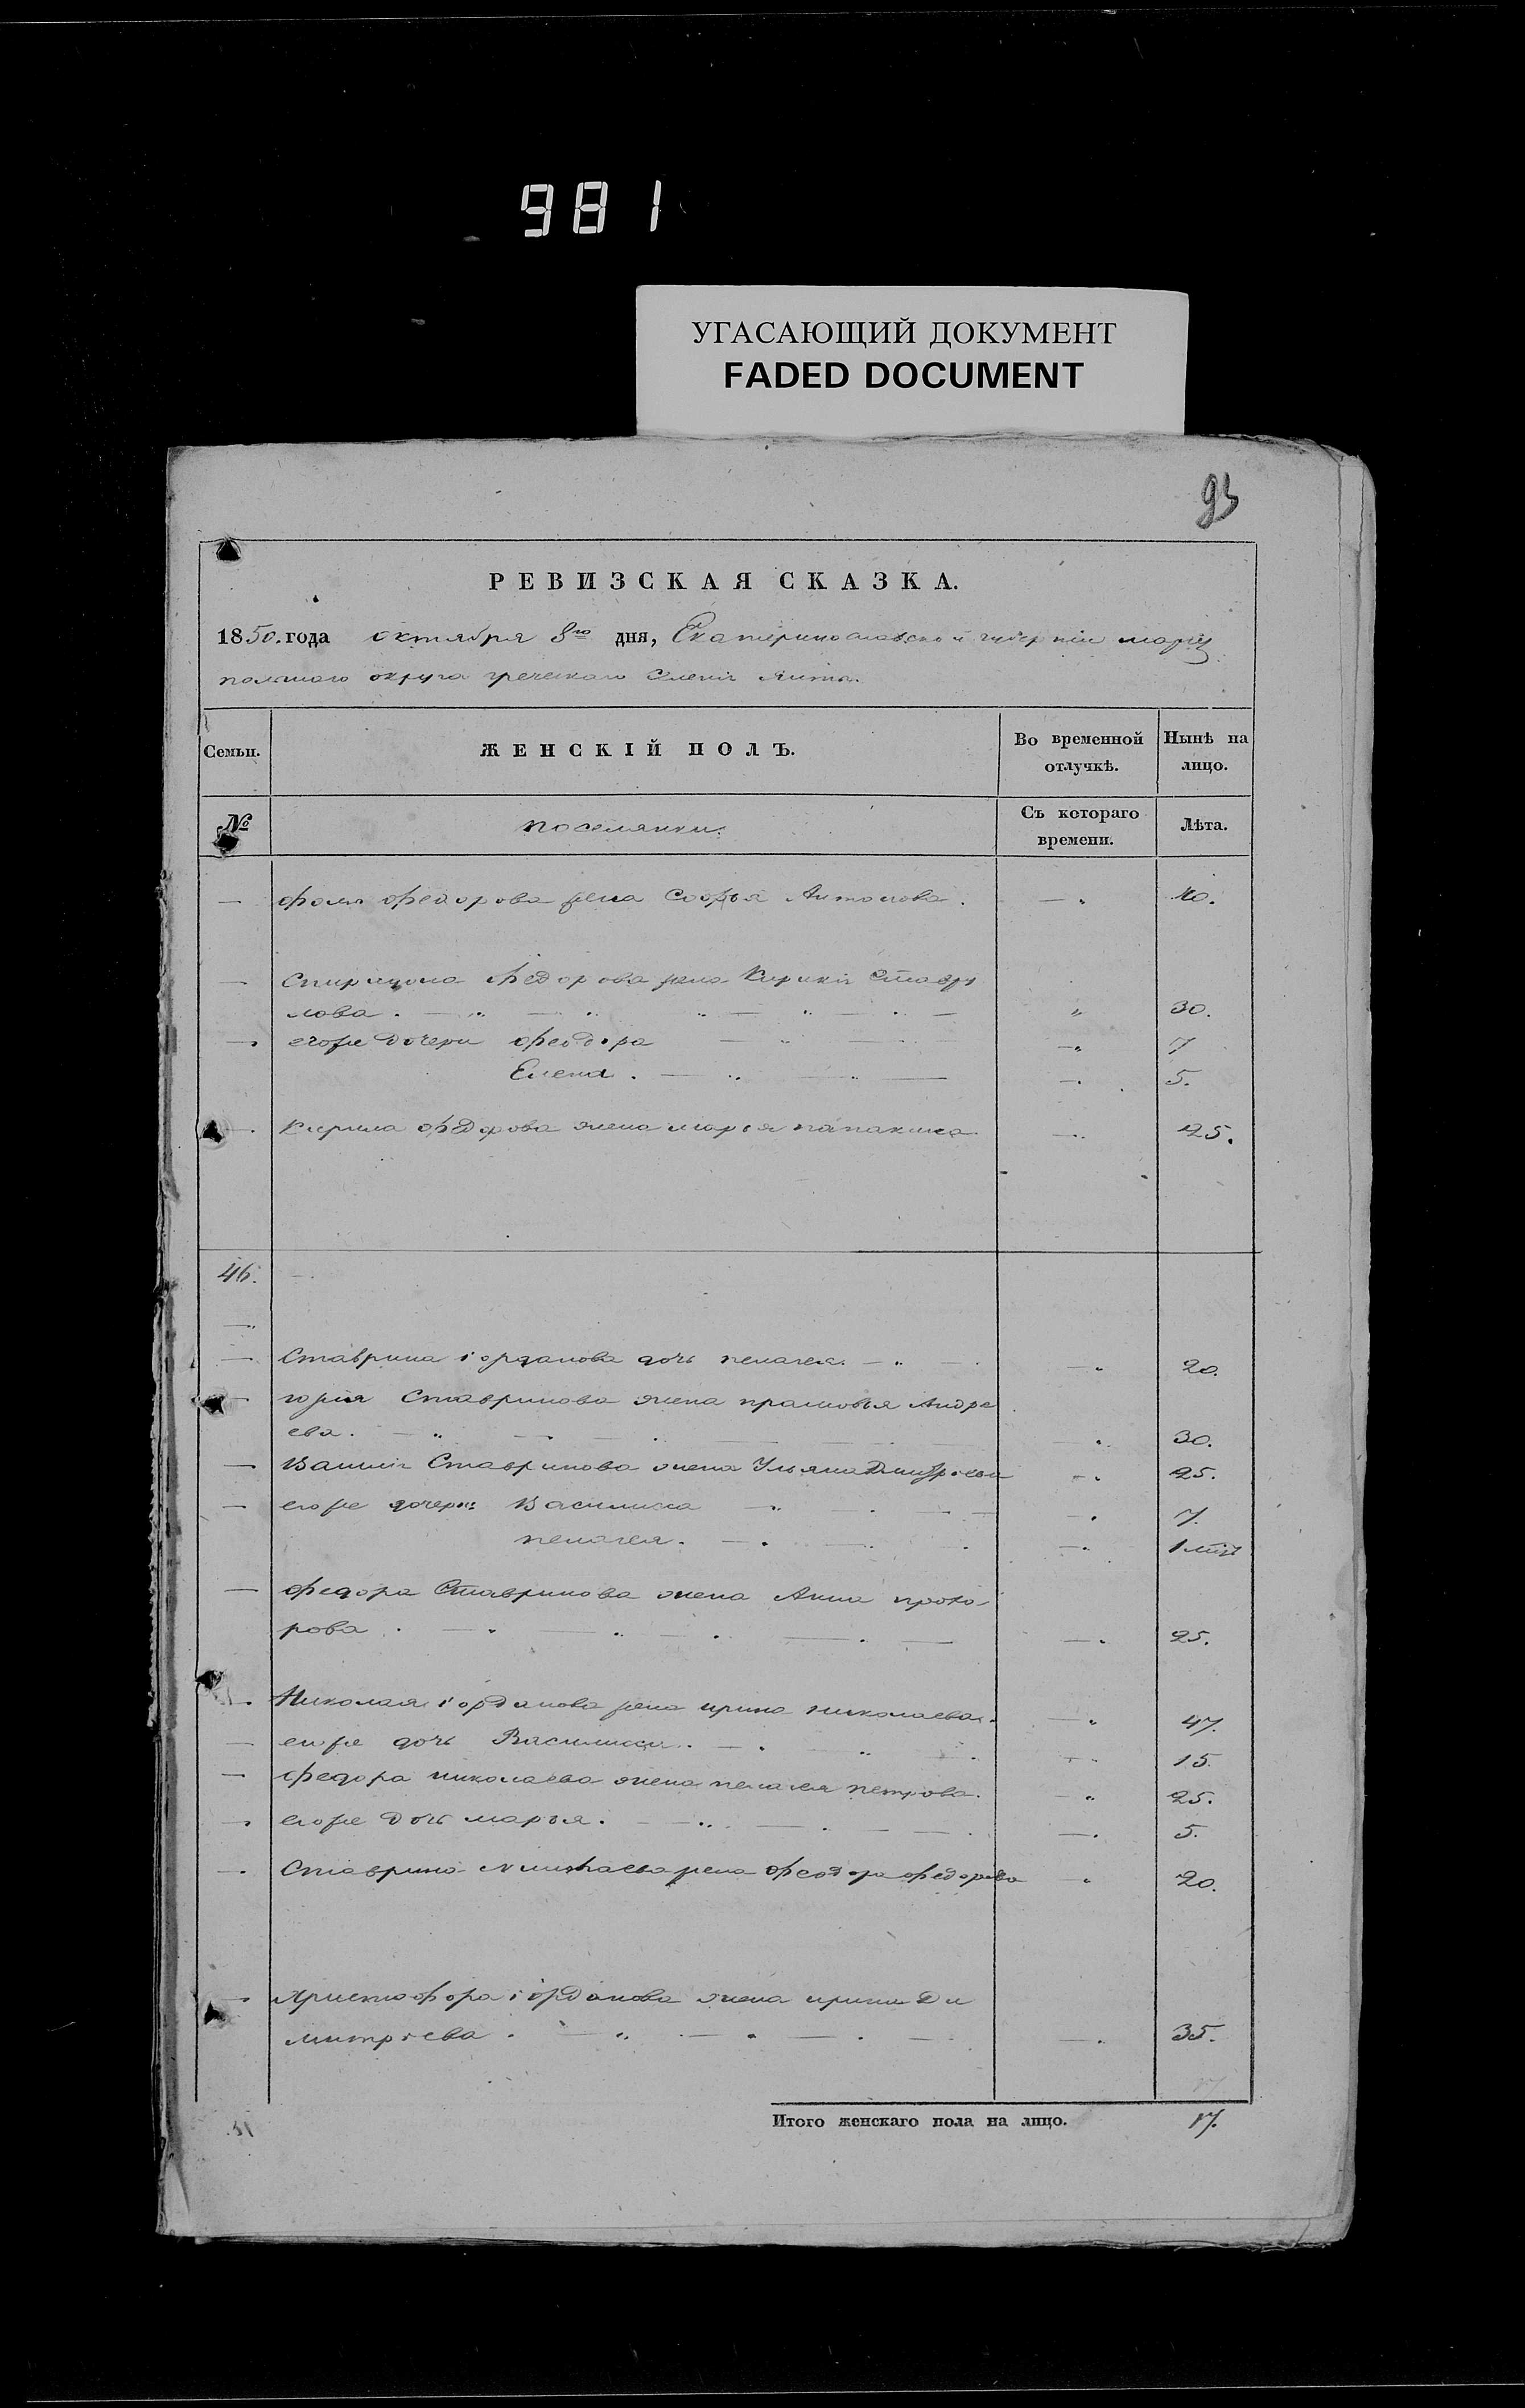 981
УГАСАЮЩИЙ ДОКУМЕНТ
FADED DOCUMENT
93
РЕВИЗСКАЯ СКАЗКА.
1850. года октября 8го дня, Екатеринославской губерніи маріу
польскаго округа греческаго Селенія Янта.
Семьи.
ЖЕНСКІЙ ПОЛЪ.
Во временной отлучкѣ.
Нынѣ на лицо.
№
поселянки.
Съ котораго времени.
Лѣта.
Федорова жена Софья Антонова. 40.
Спиридона Федорова жена
лова. 30.
егоже дочери Феодора 7
Елена. 5.
Кирила Федорова жена марья 25.
46.
Ставрина іорданова дочь пелагея. 20.
Ставринова жена прасковья Андре
ева. 30.
Василія Ставринова жена Ульяна Дмитріева 25.
егоже дочери Василиса 7.
пелагея. 1
федора Ставринова жена Анна прохо
рова. 25.
Николая іорданова жена ирина николаева. 47.
егоже дочь Василиса. 15.
федора николаева жена пелагея петрова. 25.
егоже дочь марья. 5.
Ставрина жена Феодора федорова 20.
Христофора іорданова жена ирина Ди
митріева. 35.
Итого женскаго пола на лицо. 17.